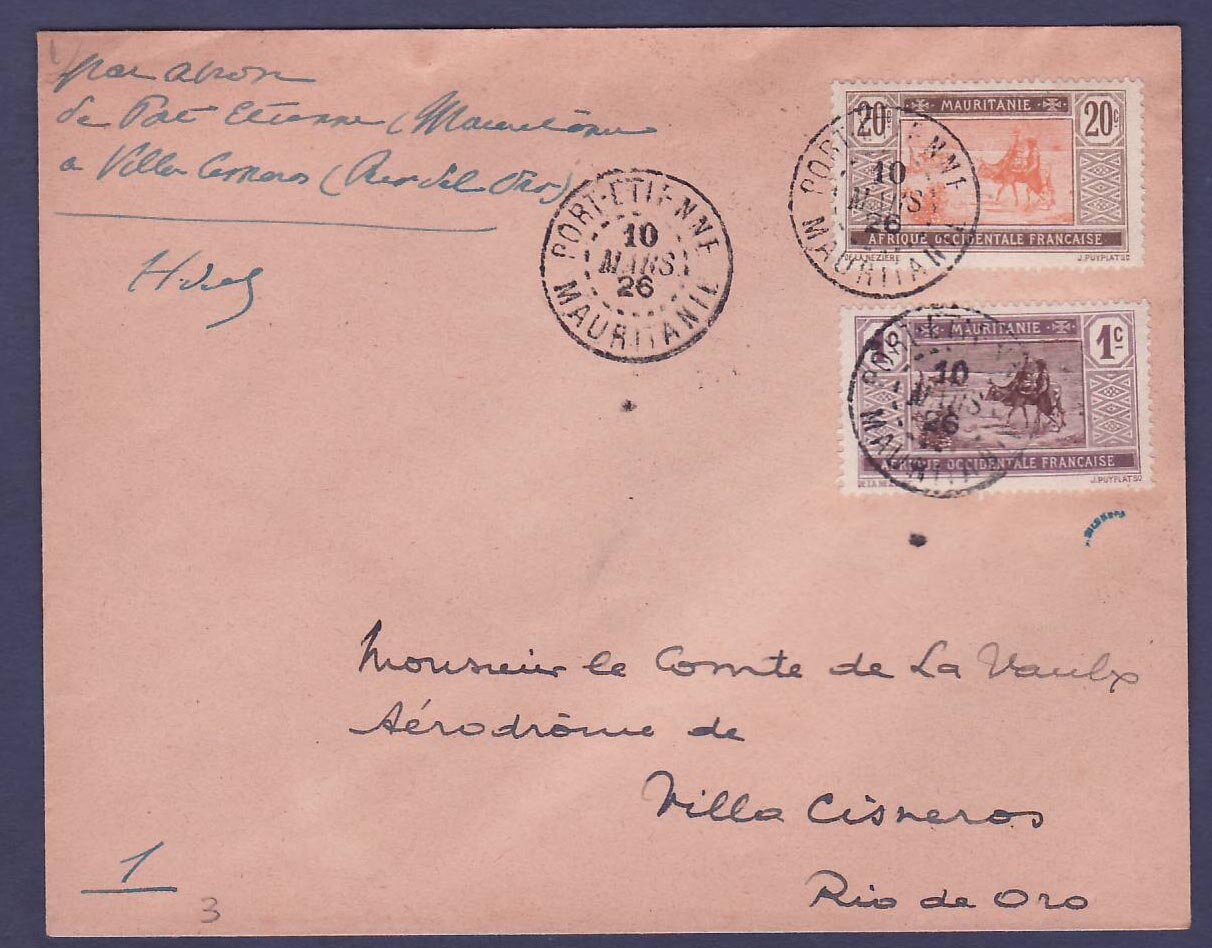 par avion
de Port Etienne (Mauritanie
a Villa Cisneros (Rio del Oro)
PORT-ETIENNE
10
MARS
26
MAURITANIE
20c MAURITANIE 20c
AFRIQUE OCCIDENTALE FRANÇAISE
DE LA NEZIÈRE J. PUYPLAT SC
PORT-ETIENNE
10
MARS
26
MAURITANIE
MAURITANIE 1c
AFRIQUE OCCIDENTALE FRANÇAISE
DE LA NEZIÈRE J. PUYPLAT SC
PORT-ETIENNE
10
MARS
26
MAURITANIE
Monsieur le Comte de La Vaulx
Aérodrôme de
Villa Cisneros
Rio de Oro
1
3